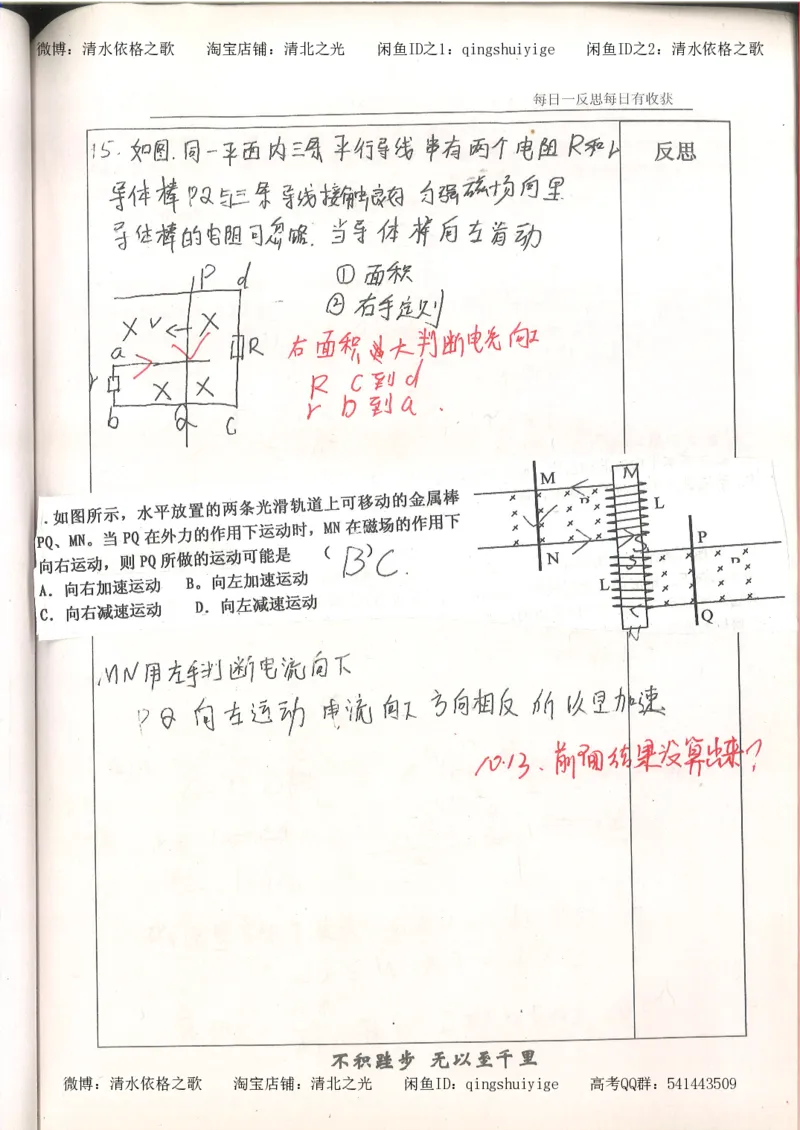 微博：清水依格之歌 淘宝店铺：清北之光 闲鱼ID之1：qingshuiyige 闲鱼ID之2：清水依格之歌
每日一反思每日有收获
15.如图.同一平面内三条平行导线串有两个电阻R和r
反思
导体棒PQ与三条导线接触良好 匀强磁场向里
导体棒的电阻可忽略.当导体棒向左滑动
P d
① 面积
② 右手定则
X V ← X
a
R
右面积 大判断电流向
R C到d
r b到a.
r
X X
b Q C
M N
L
.如图所示，水平放置的两条光滑轨道上可移动的金属棒
PQ、MN。当PQ在外力的作用下运动时，MN在磁场的作用下
向右运动，则PQ所做的运动可能是 （ BC.
A．向右加速运动 B。向左加速运动
C．向右减速运动 D．向左减速运动
N S P
S
L
Q
N
MN用左手判断电流向下
PQ向左运动 电流向下 方向相反 所以是加速
10.13、前面结果没算出来？
不积跬步 无以至千里
微博：清水依格之歌 淘宝店铺：清北之光 闲鱼ID：qingshuiyige 高考QQ群：541443509